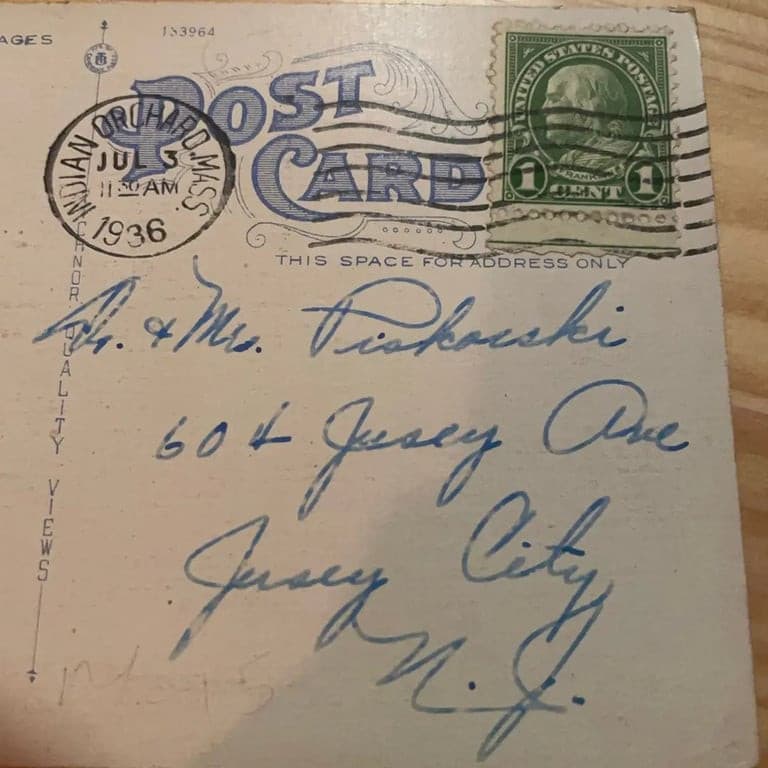 AGES
133964
POST
CARD
INDIAN ORCHARD, MASS.
JUL 3
11 30 AM
1936
UNITED STATES POSTAGE
FRANKLIN
1 CENT 1
THIS SPACE FOR ADDRESS ONLY
CHNOR QUALITY VIEWS
& Mrs. Piskorski
604 Jersey Ave
Jersey City
N. J.